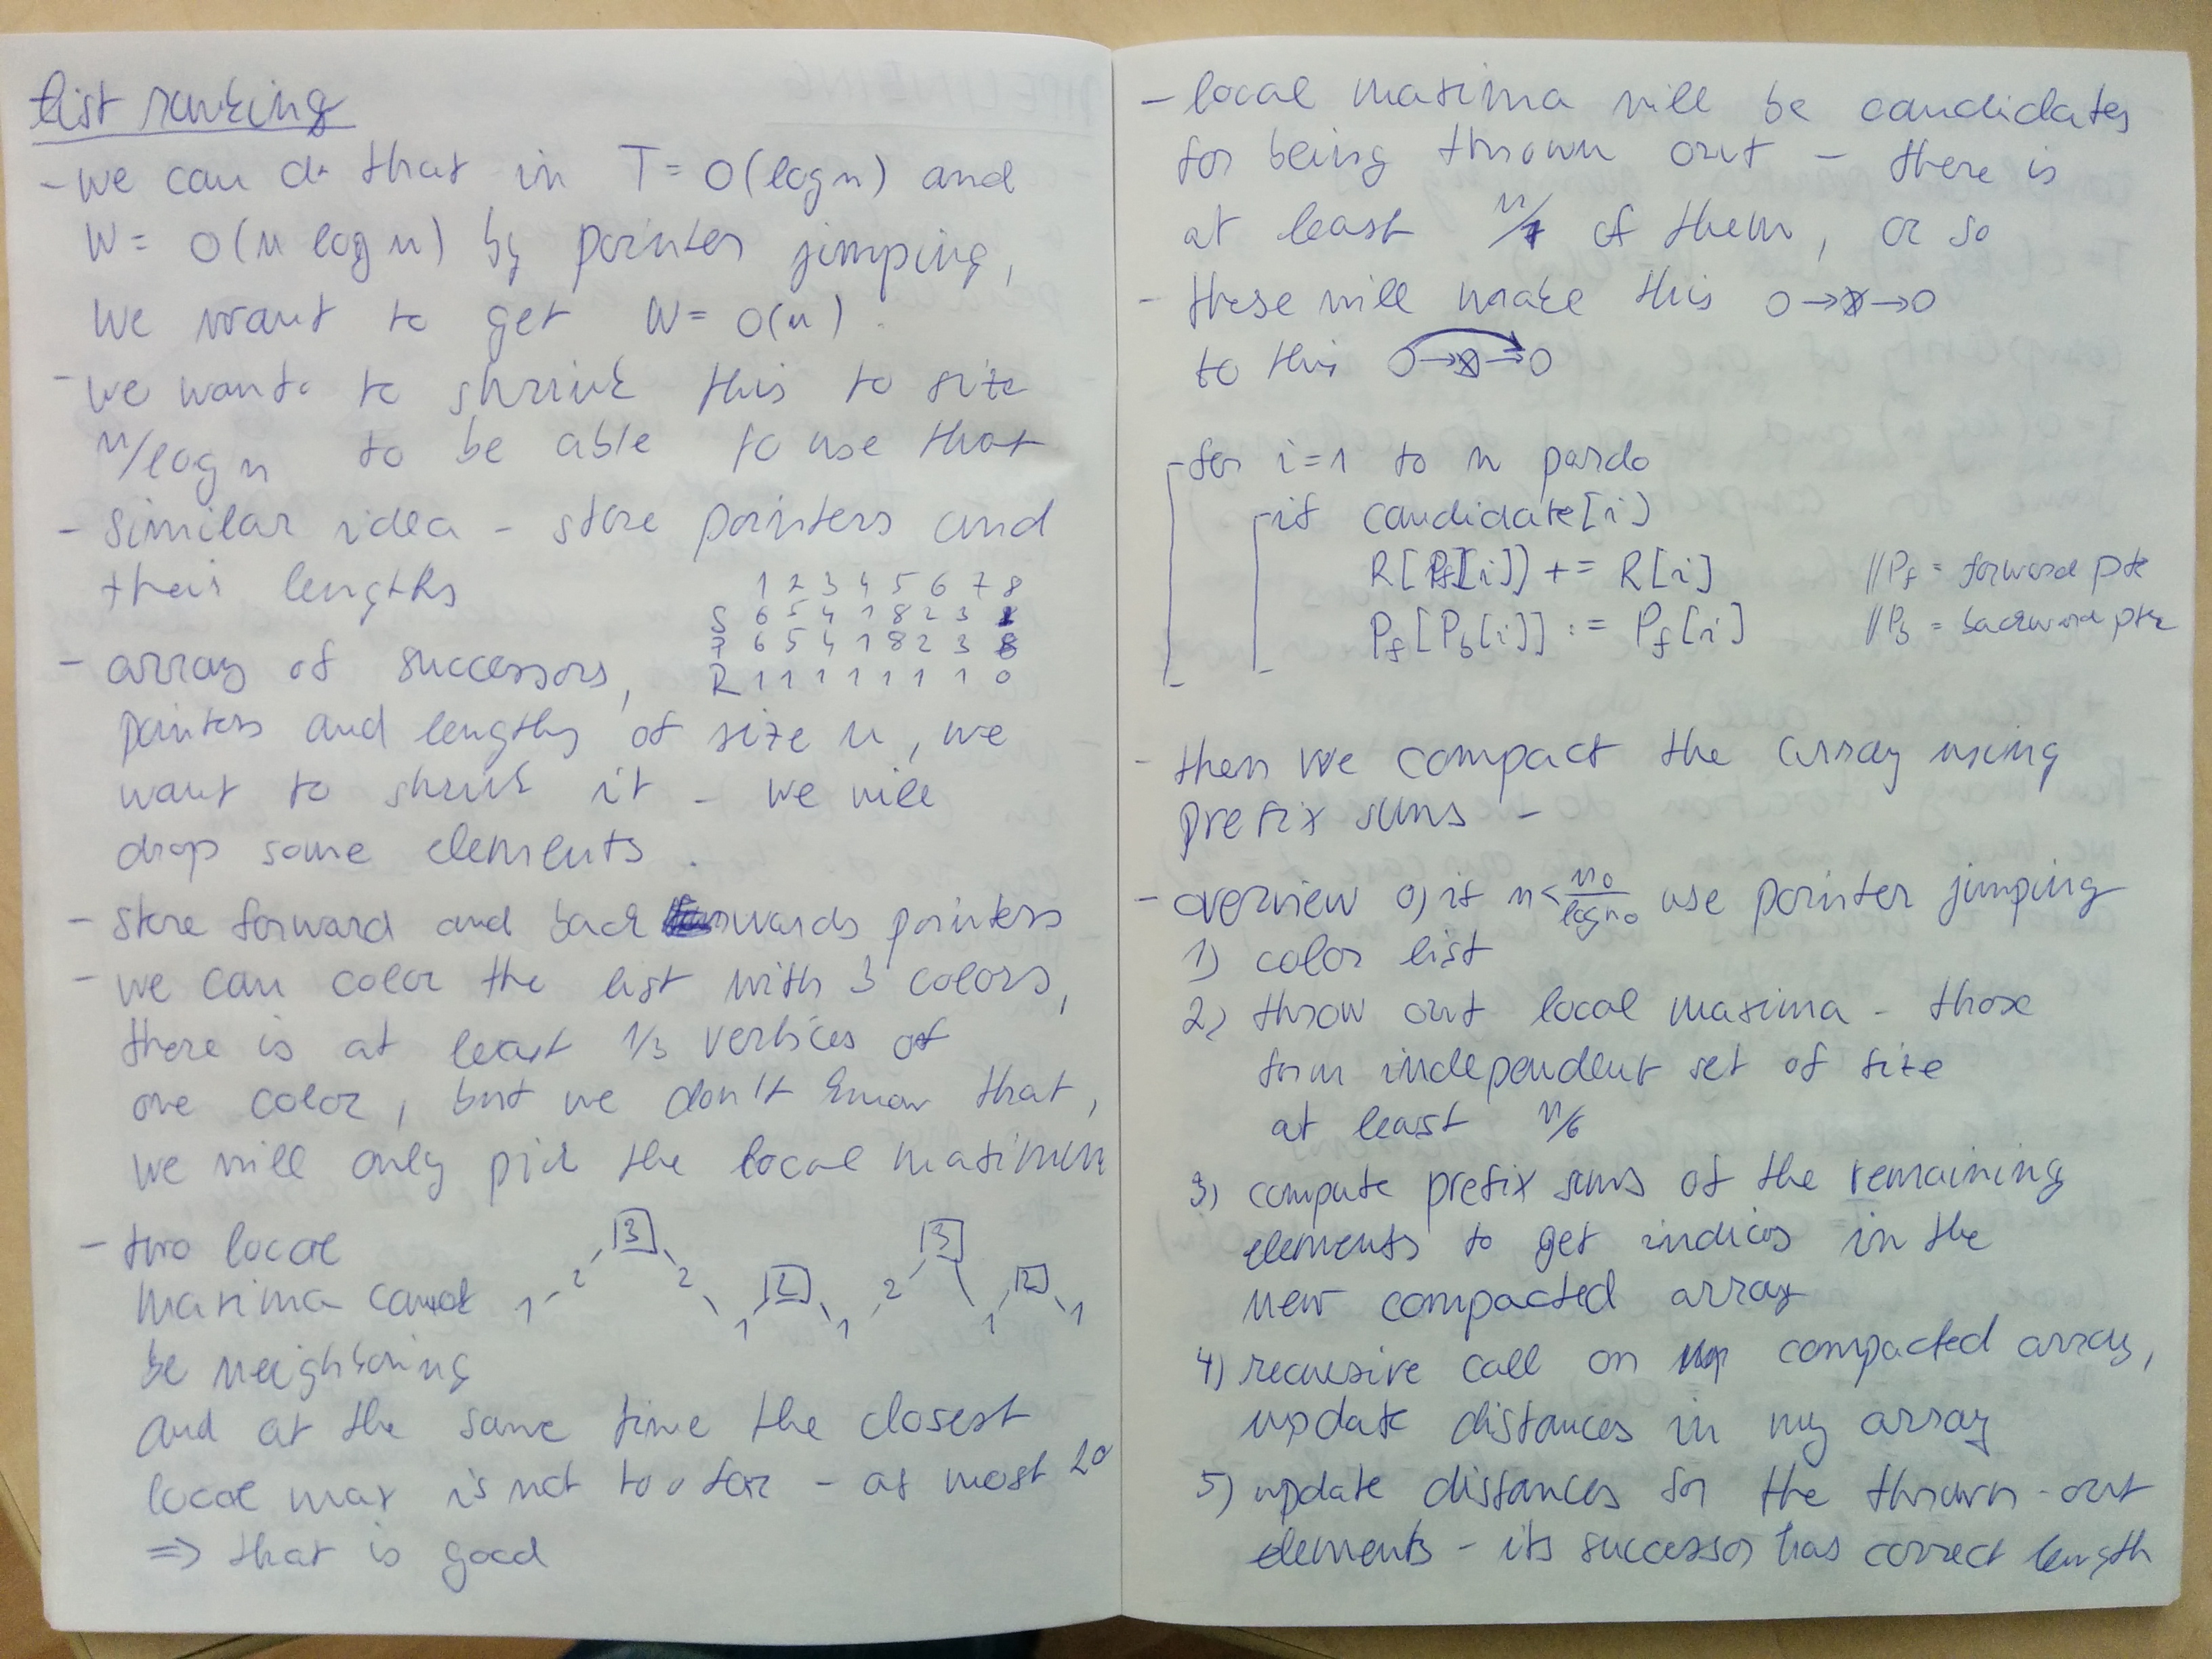 list ranking
- we can do that in T = O(log n) and
W = O(n log n) by pointer jumping,
we want to get W = O(n).
- we want to shrink this to size
n/log n to be able to use that
- similar idea - store pointers and
their lengths
1 2 3 4 5 6 7 8
S 6 5 4 1 8 2 3
P 6 5 4 1 8 2 3 8
R 1 1 1 1 1 1 1 0
- array of successors,
pointers and lengths of size n, we
want to shrink it - we will
drop some elements.
- store forward and backwards pointers
- we can color the list with 3 colors,
there is at least 1/3 vertices of
one color, but we don't know that,
we will only pick the local maximum
- two local
maxima cannot
be neighboring
1 2 3 2 1 2 1 2 3 1 2 1
and at the same time the closest
local max is not too far - at most 20
⇒ that is good
- local maxima will be candidates
for being thrown out - there is
at least n/7 of them, or so
- these will make this O→X→O
to this O→X→O
for i=1 to n pardo
if candidate[i]
R[Pb[i]] += R[i] //Pf = forward ptr
Pf[Pb[i]] := Pf[i] //Pb = backward ptr
- then we compact the array using
prefix sums -
- overview 0) if n < n0/log n0 use pointer jumping
1) color list
2) throw out local maxima - those
form independent set of size
at least n/6
3) compute prefix sums of the remaining
elements to get indices in the
new compacted array
4) recursive call on compacted array,
update distances in my array
5) update distances for the thrown-out
elements - its successor has correct length